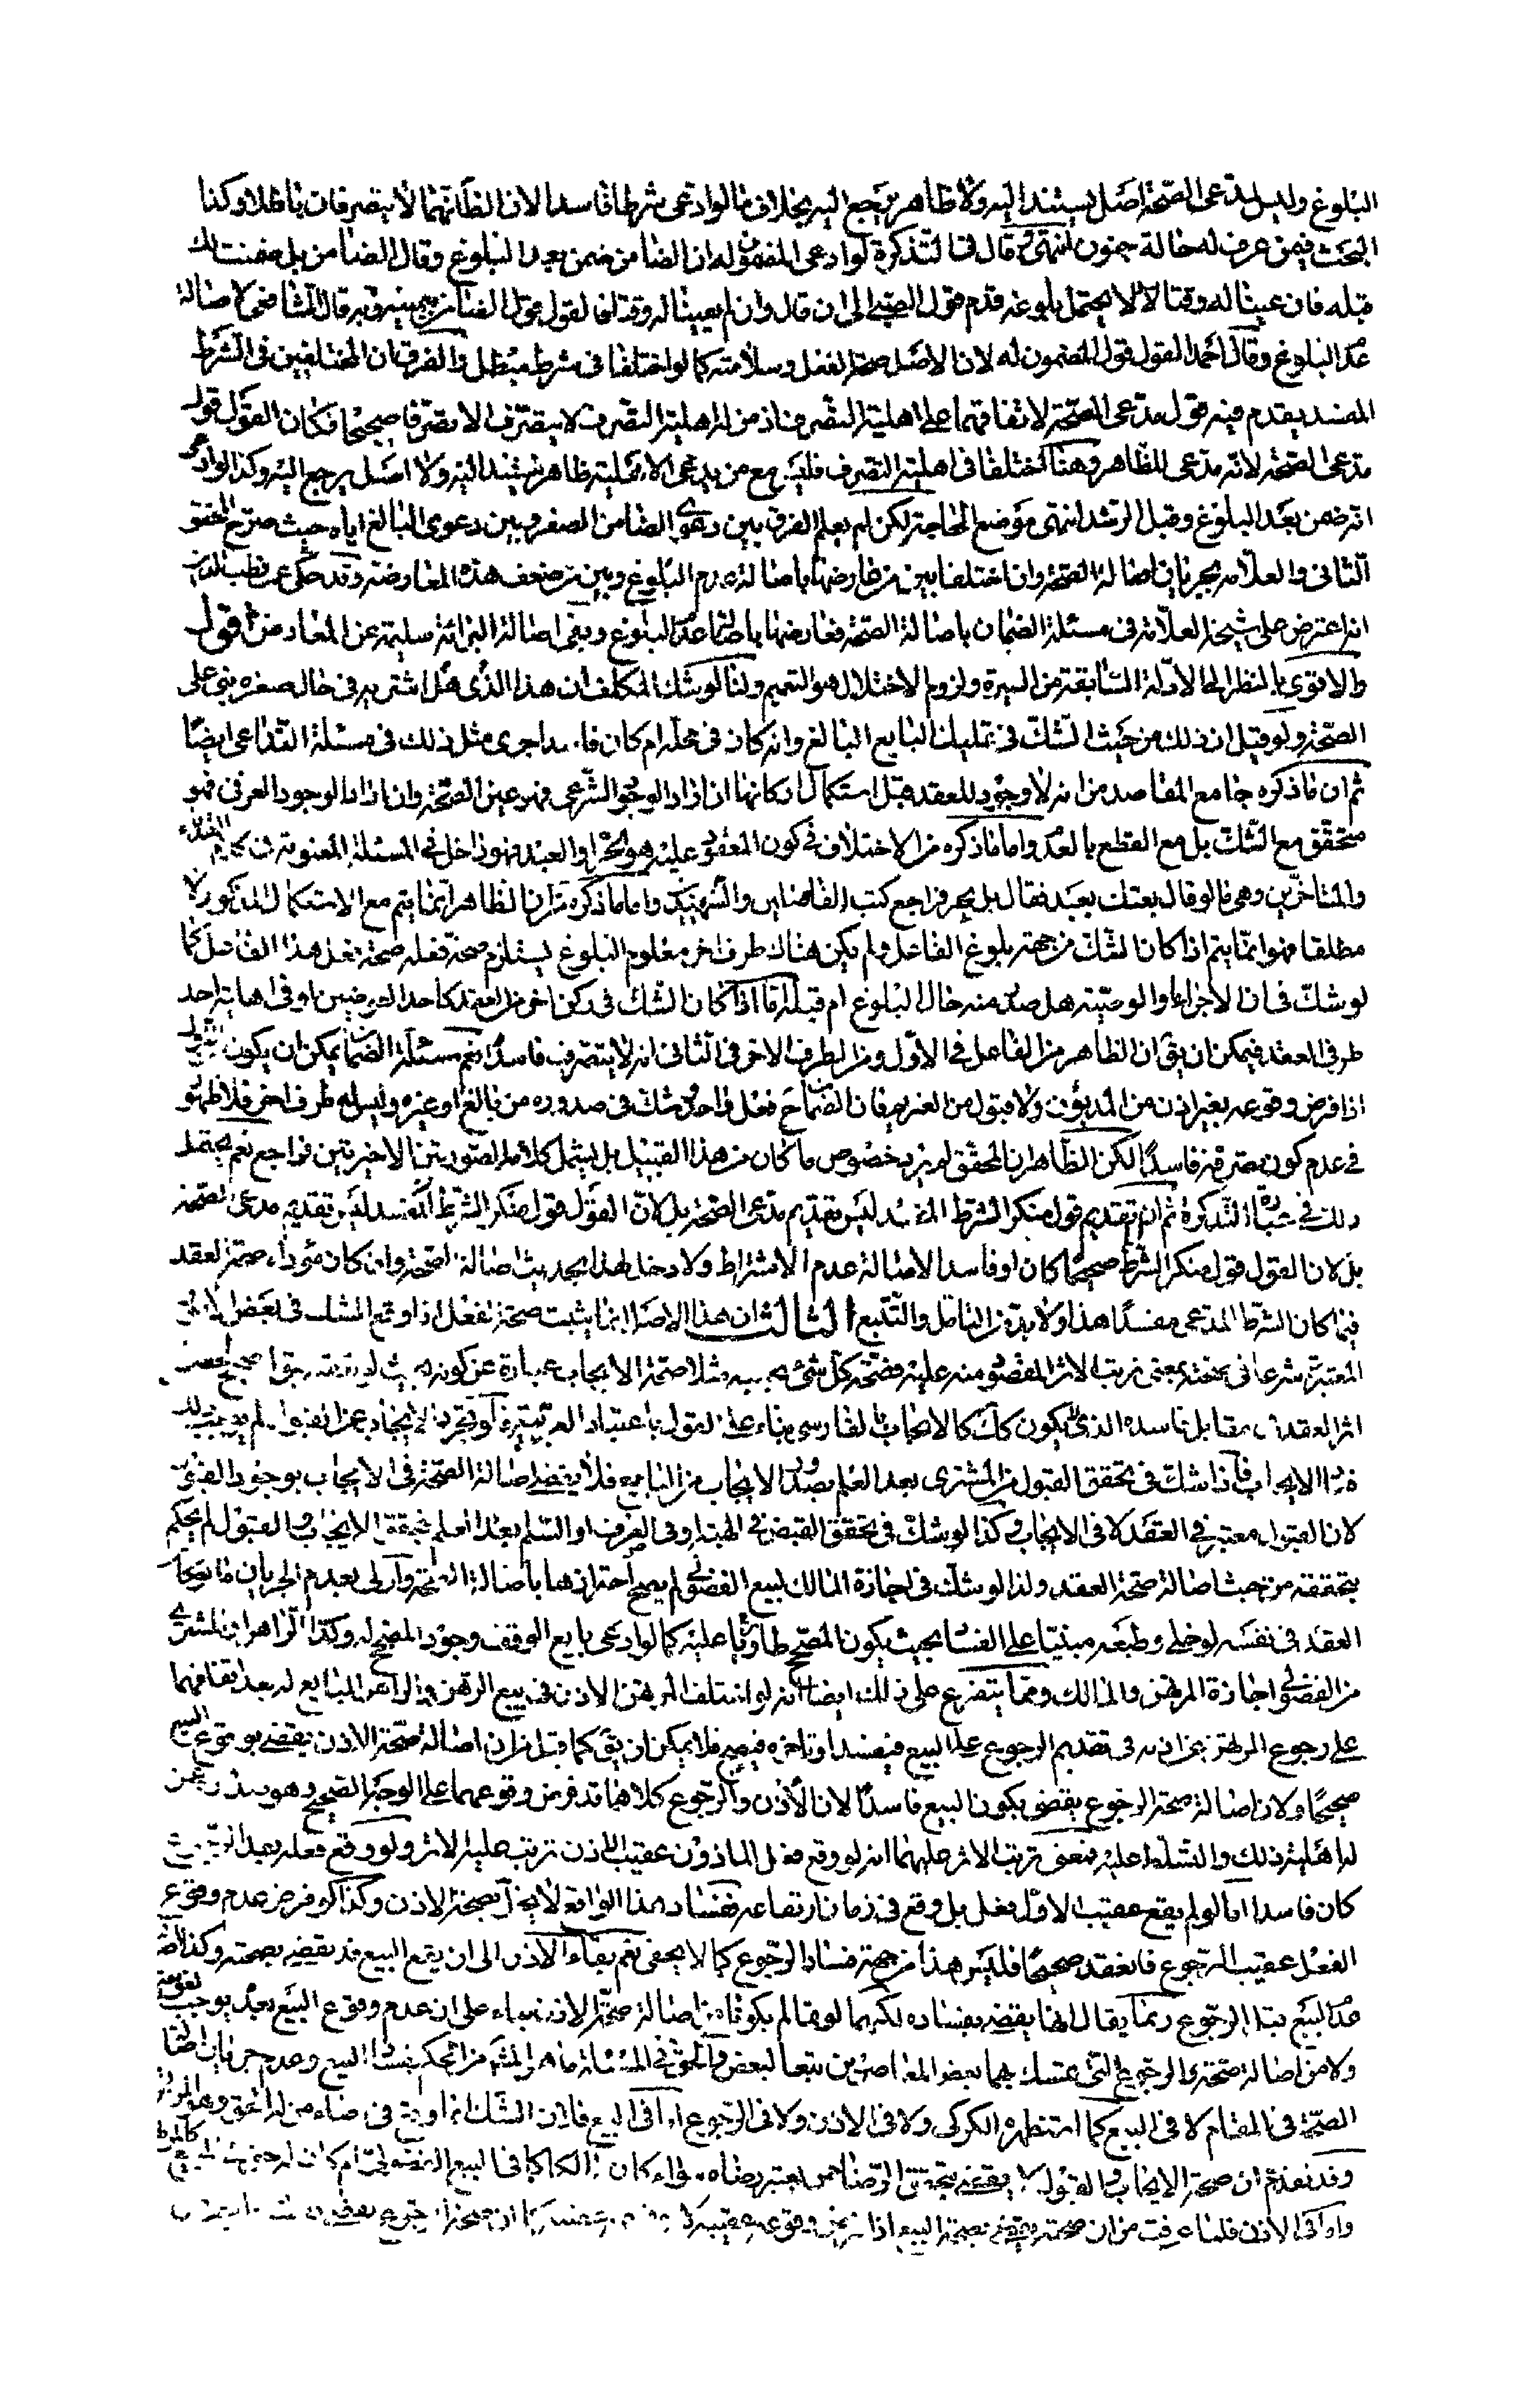 البلوغ وليس لمدعى الصحة اصل يستند اليه ولا ظاهر يرجع اليه بخلاف ما لو ادعى شرطا فاسدا لان الظ انهما لا يتصرفان باطلا وكذا
البحث فيمن عرف له حالة جنون انتهى وقال فى التذكرة لو ادعى المضمون له ان الضامن ضمن بعد البلوغ وقال الضامن بل ضمنت لك
قبله فان عينا له وقتا لا يحتمل بلوغه قدم قول الصبى الى ان قال وان لم يعينا له وقتا فالقول قول الضامن بيمينه وبه قال الشافعى لاصالة
عدم البلوغ وقال احمد القول قول المضمون له لان الاصل صحة الفعل وسلامته كما لو اختلفا فى شرط مبطل والفرق ان المختلفين فى الشرط
المفسد يقدم فيه قول مدعى الصحة لاتفاقهما على اهلية التصرف اذ من له اهلية التصرف لا يتصرف الا تصرفا صحيحا فكان القول قول
مدعى الصحة لانه مدعى للظاهر وهنا اختلفا فى اهلية التصرف فليس مع من يدعى الاهلية ظاهر يستند اليه ولا اصل يرجع اليه وكذا لو ادعى
انه ضمن بعد البلوغ وقبل الرشد انتهى موضع الحاجة لكن لم يعلم الفرق بين دعوى الضامن الصغر وبين دعوى البالغ اياه حيث صرح المحقق
الثانى والعلامة بجريان اصالة الصحة وان اختلفا بين من عارضها باصالة عدم البلوغ وبين من ضعف هذه المعارضة وقد حكى عن قطب الدين
انه اعترض على شيخه العلامة فى مسئلة الضمان باصالة الصحة فعارضها باصالة عدم البلوغ وبقى اصالة البرائة سليمة عن المعارض اقول
والاقوى بالنظر الى الادلة السابقة من السيرة ولزوم الاختلال هو التعميم ولذا لو شك المكلف ان هذا الذى هل اشتريه فى حال صغره بنى على
الصحة ولو قيل ان ذلك من حيث الشك فى تمليك البايع البالغ وانه كان فى محله ام كان فاسدا جرى مثل ذلك فى مسئلة التداعى ايضا
ثم ان ما ذكره جامع المقاصد من انه لا وجود للعقد قبل استكمال اركانها ان اراد الوجود الشرعى فهو عين الصحة وان اراد الوجود العرفى فهو
متحقق مع الشك بل مع القطع بالعدم واما ما ذكره من الاختلاف فى كون المعقود عليه هو الحر او العبد فهو داخل فى المسئلة المعنونة فى كلام القدماء
والمتاخرين وهى ما لو قال بعتك بعبد فقال بل بحر فراجع كتب الفاضلين والشهيدين واما ما ذكره من ان الظاهر انما يتم مع الاستكمال المذكور لا
مطلقا فهو انما يتم اذا كان الشك من جهة بلوغ الفاعل ولم يكن هناك طرف اخر معلوم البلوغ يستلزم صحة فعله صحة فعل هذا الفاعل كما
لو شك فى ان الابراء او الوصية هل صدر منه حال البلوغ ام قبله اما اذا كان الشك فى ركن اخر من العقد كاحد العوضين او فى اهلية احد
طرفى العقد فيمكن ان يق ان الظاهر من الفاعل فى الاول ومن الطرف الاخر فى الثانى انه لا يتصرف فاسدا نعم مسئلة الضمان يمكن ان يكون من الاول
اذا فرض وقوعه بغير اذن من المديون ولا قبول من الغريم فان الضمان ح فعل واحد شك فى صدوره من بالغ او غيره وليس له طرف اخر فلا ظهور
فى عدم كون تصرفه فاسدا لكن الظاهر ان المحقق لم يرد خصوص ما كان من هذا القبيل بل يشمل كلامه الصورتين الاخيرتين فراجع نعم يحتمل
ذلك فى عبارة التذكرة ثم ان تقديم قول منكر الشرط المفسد ليس تقديم مدعى الصحة بل لان القول قول منكر الشرط المفسد ليس تقديم مدعى الصحة
بل لان القول قول منكر الشرط صحيحا كان او فاسدا لاصالة عدم الاشتراط ولا دخل لهذا بحديث اصالة الصحة وان كان مؤداه صحة العقد
فيما كان الشرط المدعى مفسدا هذا ولا بد من التامل والتتبع الثالث ان هذا الاصل انما يثبت صحة الفعل اذا وقع الشك فى بعض الامور
المعتبرة شرعا فى صحته بمعنى ترتب الاثر المقصود منه عليه فصحة كل شئ بحسبه مثلا صحة الايجاب عبارة عن كونه بحيث لو تعقبه قبول صحيح لحصل
اثر العقد فى مقابل فاسده الذى لا يكون كك كالايجاب بالفارسى بناء على القول باعتبار العربية فلو تجرد الايجاب عن القبول لم يوجب ذلك
فساد الايجاب فاذا شك فى تحقق القبول من المشترى بعد العلم بصدور الايجاب من البايع فلا يقضى اصالة الصحة فى الايجاب بوجود القبول
لان القبول معتبر فى العقد لا فى الايجاب وكذا لو شك فى تحقق القبض فى الهبة او فى الصرف او السلم بعد العلم بتحقق الايجاب والقبول لم يحكم
بتحققه من حيث اصالة صحة العقد ولذا لو شك فى اجازة المالك لبيع الفضولى لم يصح احرازها باصالة الصحة واولى بعدم الجريان ما لو كان
العقد فى نفسه لو خلى وطبعه مبنيا على الفساد بحيث يكون المصحح طاريا عليه كما لو ادعى بايع الوقف وجود المصحح له وكذا الراهن او المشترى
من الفضولى اجازة المرتهن والمالك ومما يتفرع على ذلك ايضا انه لو اختلف المرتهن الاذن فى بيع الرهن والراهن البايع له بعد اتفاقهما
على رجوع المرتهن عن اذنه فى تقديم الرجوع على البيع فيفسد او تاخره فيصح فلا يمكن ان يق كما قيل من ان اصالة صحة الاذن يقضى بوقوع البيع
صحيحا ولا ان اصالة صحة الرجوع يقضى بكون البيع فاسدا لان الاذن والرجوع كلاهما قد فرض وقوعهما على الوجه الصحيح وهو صدوره عمن
له اهلية ذلك والتسلط عليه فمعنى ترتب الاثر عليهما انه لو وقع فعل الماذون عقيب الاذن ترتب عليه الاثر ولو وقع فعله بعد الرجوع
كان فاسدا اما لو لم يقع عقيب الاول فعل بل وقع فى زمان ارتفاعه ففساد هذا الواقع لا يخل بصحة الاذن وكذا لو فرض عدم وقوع
الفعل عقيب الرجوع فانعقد صحيحا فليس هذا من جهة فساد الرجوع كما لا يخفى نعم بقاء الاذن الى ان يقع البيع قد يقضى بصحته وكذا اصالة
عدم البيع قبل الرجوع ربما يقال انها يقضى بفساده لكنهما لو تما لم يكونا من اصالة صحة الاذن بناء على ان عدم وقوع البيع بعده يوجب لغويته
ولا من اصالة صحة الرجوع التى تمسك بهما بعض المعاصرين تبعا لبعض والحق فى المسئلة ما هو المشهور من الحكم بفساد البيع وعدم جريان اصالة
الصحة فى المقام لا فى البيع كما استظهره الكركى ولا فى الاذن ولا فى الرجوع اما فى البيع فلان الشك انما وقع فى رضاء من له الحق وهو المرتهن
وقد تقدم ان صحة الايجاب والقبول لا يقضى بتحقق الرضا ممن يعتبر رضاه سواء كان مالكا كما فى البيع الفضولى ام كان له حق فى المبيع كالمرتهن
واما فى الاذن فلما عرفت من ان صحته يقضى بصحة البيع اذا فرض وقوعه عقيبه لا بوقوعه عقيبه كما ان صحة الرجوع يقضى بفساد ما يفرض